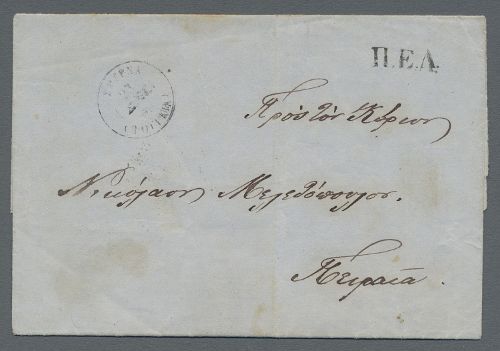 Π.Ε.Λ.
Πρὸς τὸν Κύριον
Νικόλαον Μελετόπουλον.
Πειραιᾶ.